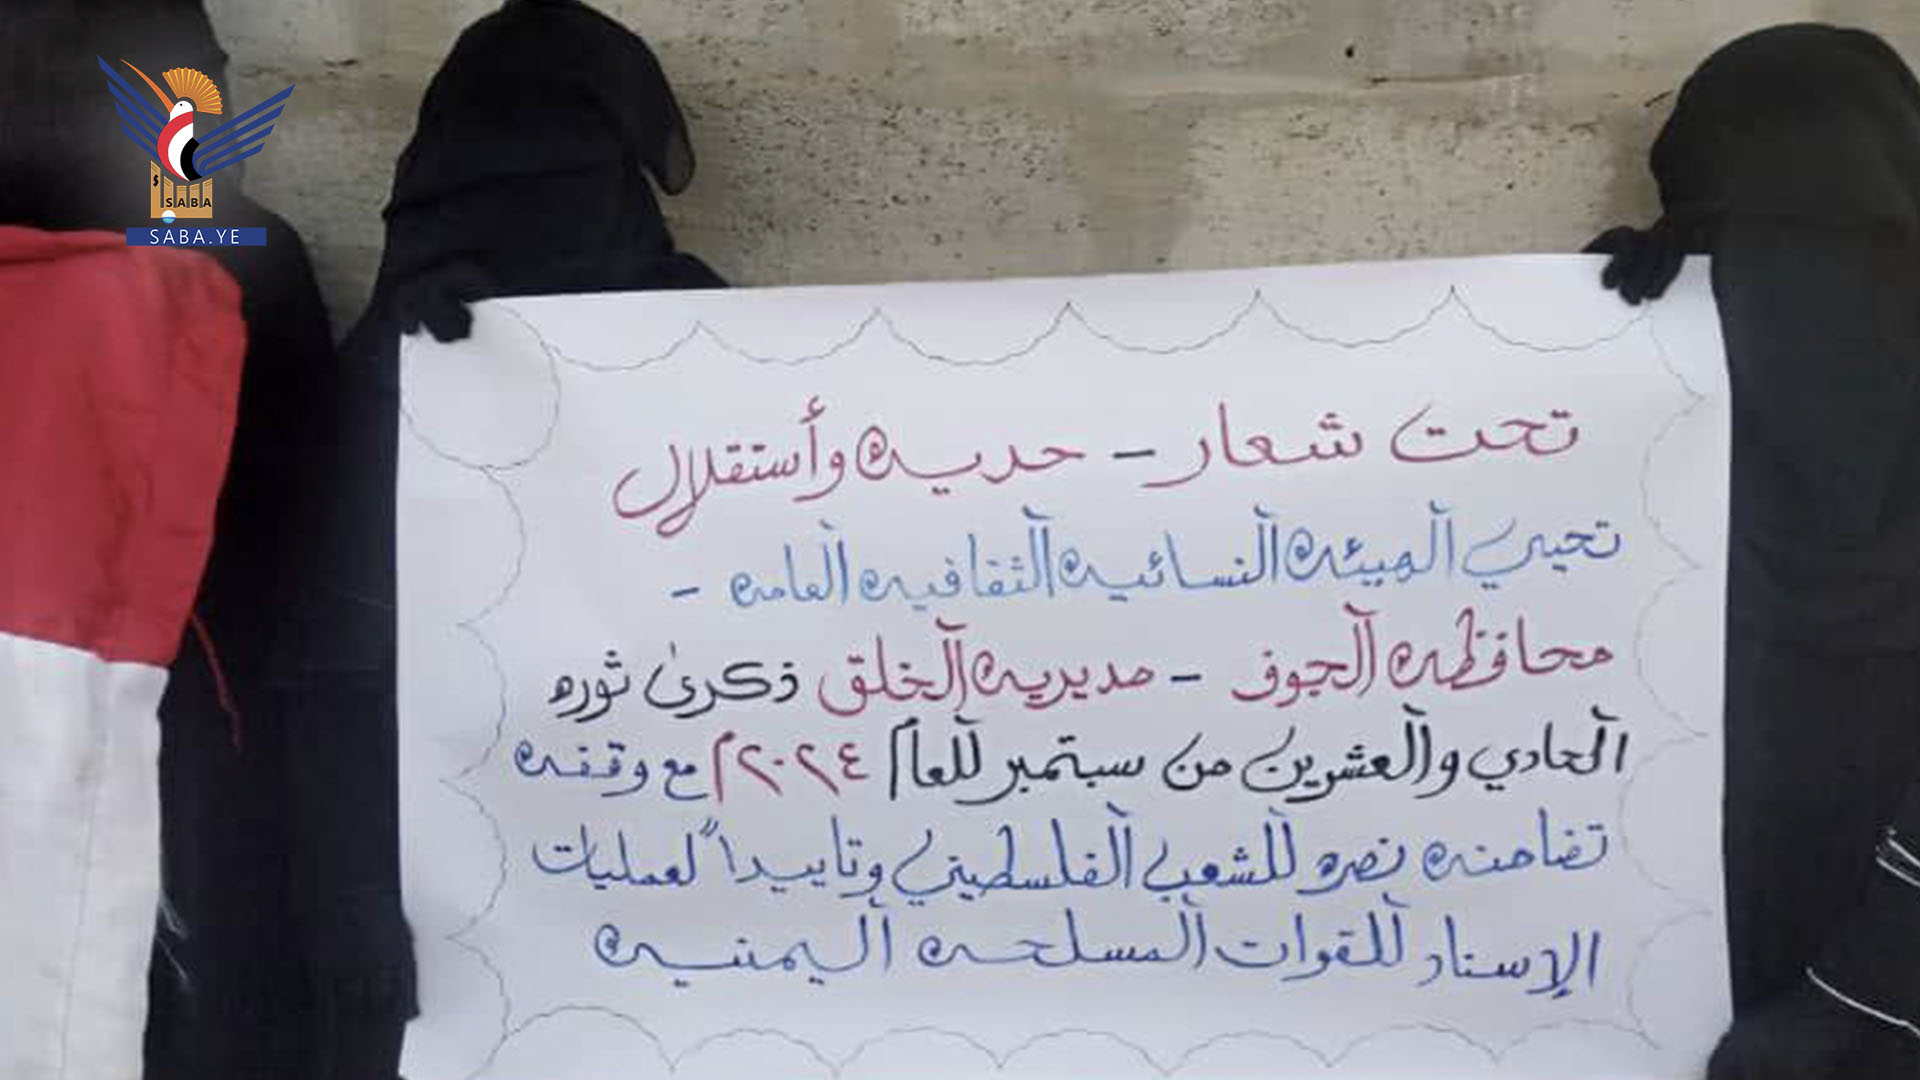 SABA
SABA.YE
تحت شعار - حديه وأستقلال
تحيي الهيئه النسائيه الثقافيه العامه -
محافظه الجوف - مديريه الخلق ذكرى ثوره
الحادي والعشرين من سبتمبر للعام ٢٠٢٤م مع وقفه
تضامنه نصره للشعب الفلسطيني وتاييداً لعمليات
الإسناد للقوات المسلحه اليمنيه